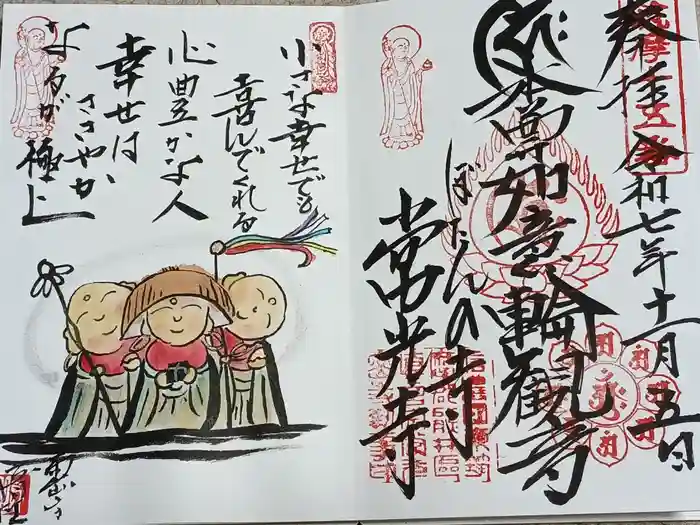 奉拝 令和七年十一月五日
本尊如意輪観音
ぼたんの寺
常光寺
小さな幸せでも
喜んでくれる
心豊かな人
幸せは
ささやか
なるが極上